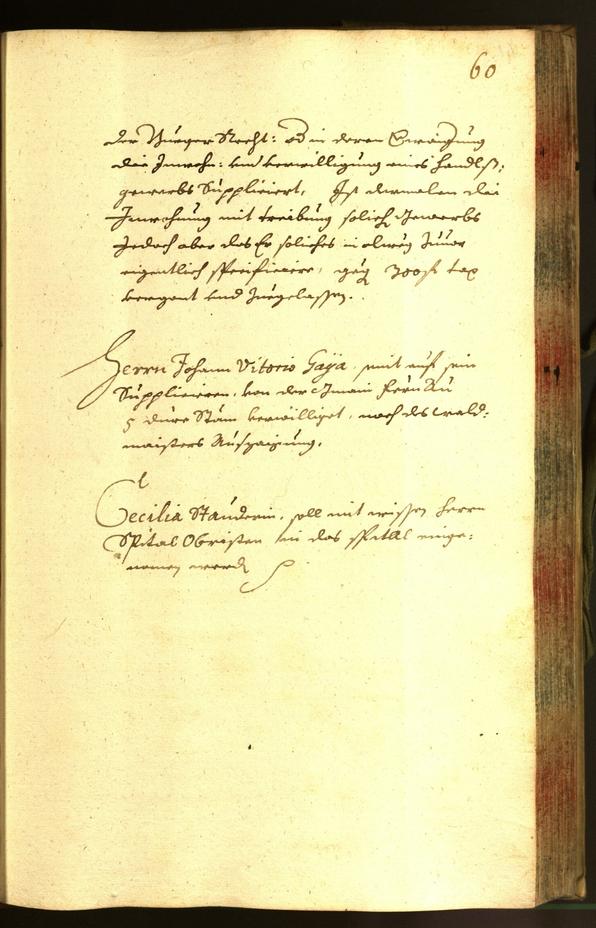 60
der Burger Recht: od in deren Erwögung
die Inwohn: und bewilligung eines handlß:
gewerbs Suppliciert, Ist dermalen die
Inwohnung mit treibung solich Gewerbs
Jedoch aber das Er soliches in
eigentlich specificiere, geg 300 fl tax
und Zuegelassen.
Herrn Johann Vitorio Gaÿa, auf sein
Supplicieren, von der Gmain
5 dürre Stäm bewilliget, nach des wald:
maisters Auszaigung.
Cecilia Stauderin, soll mit wissen Herrn
Spital Obristen in das spital einge:
nomen werdn